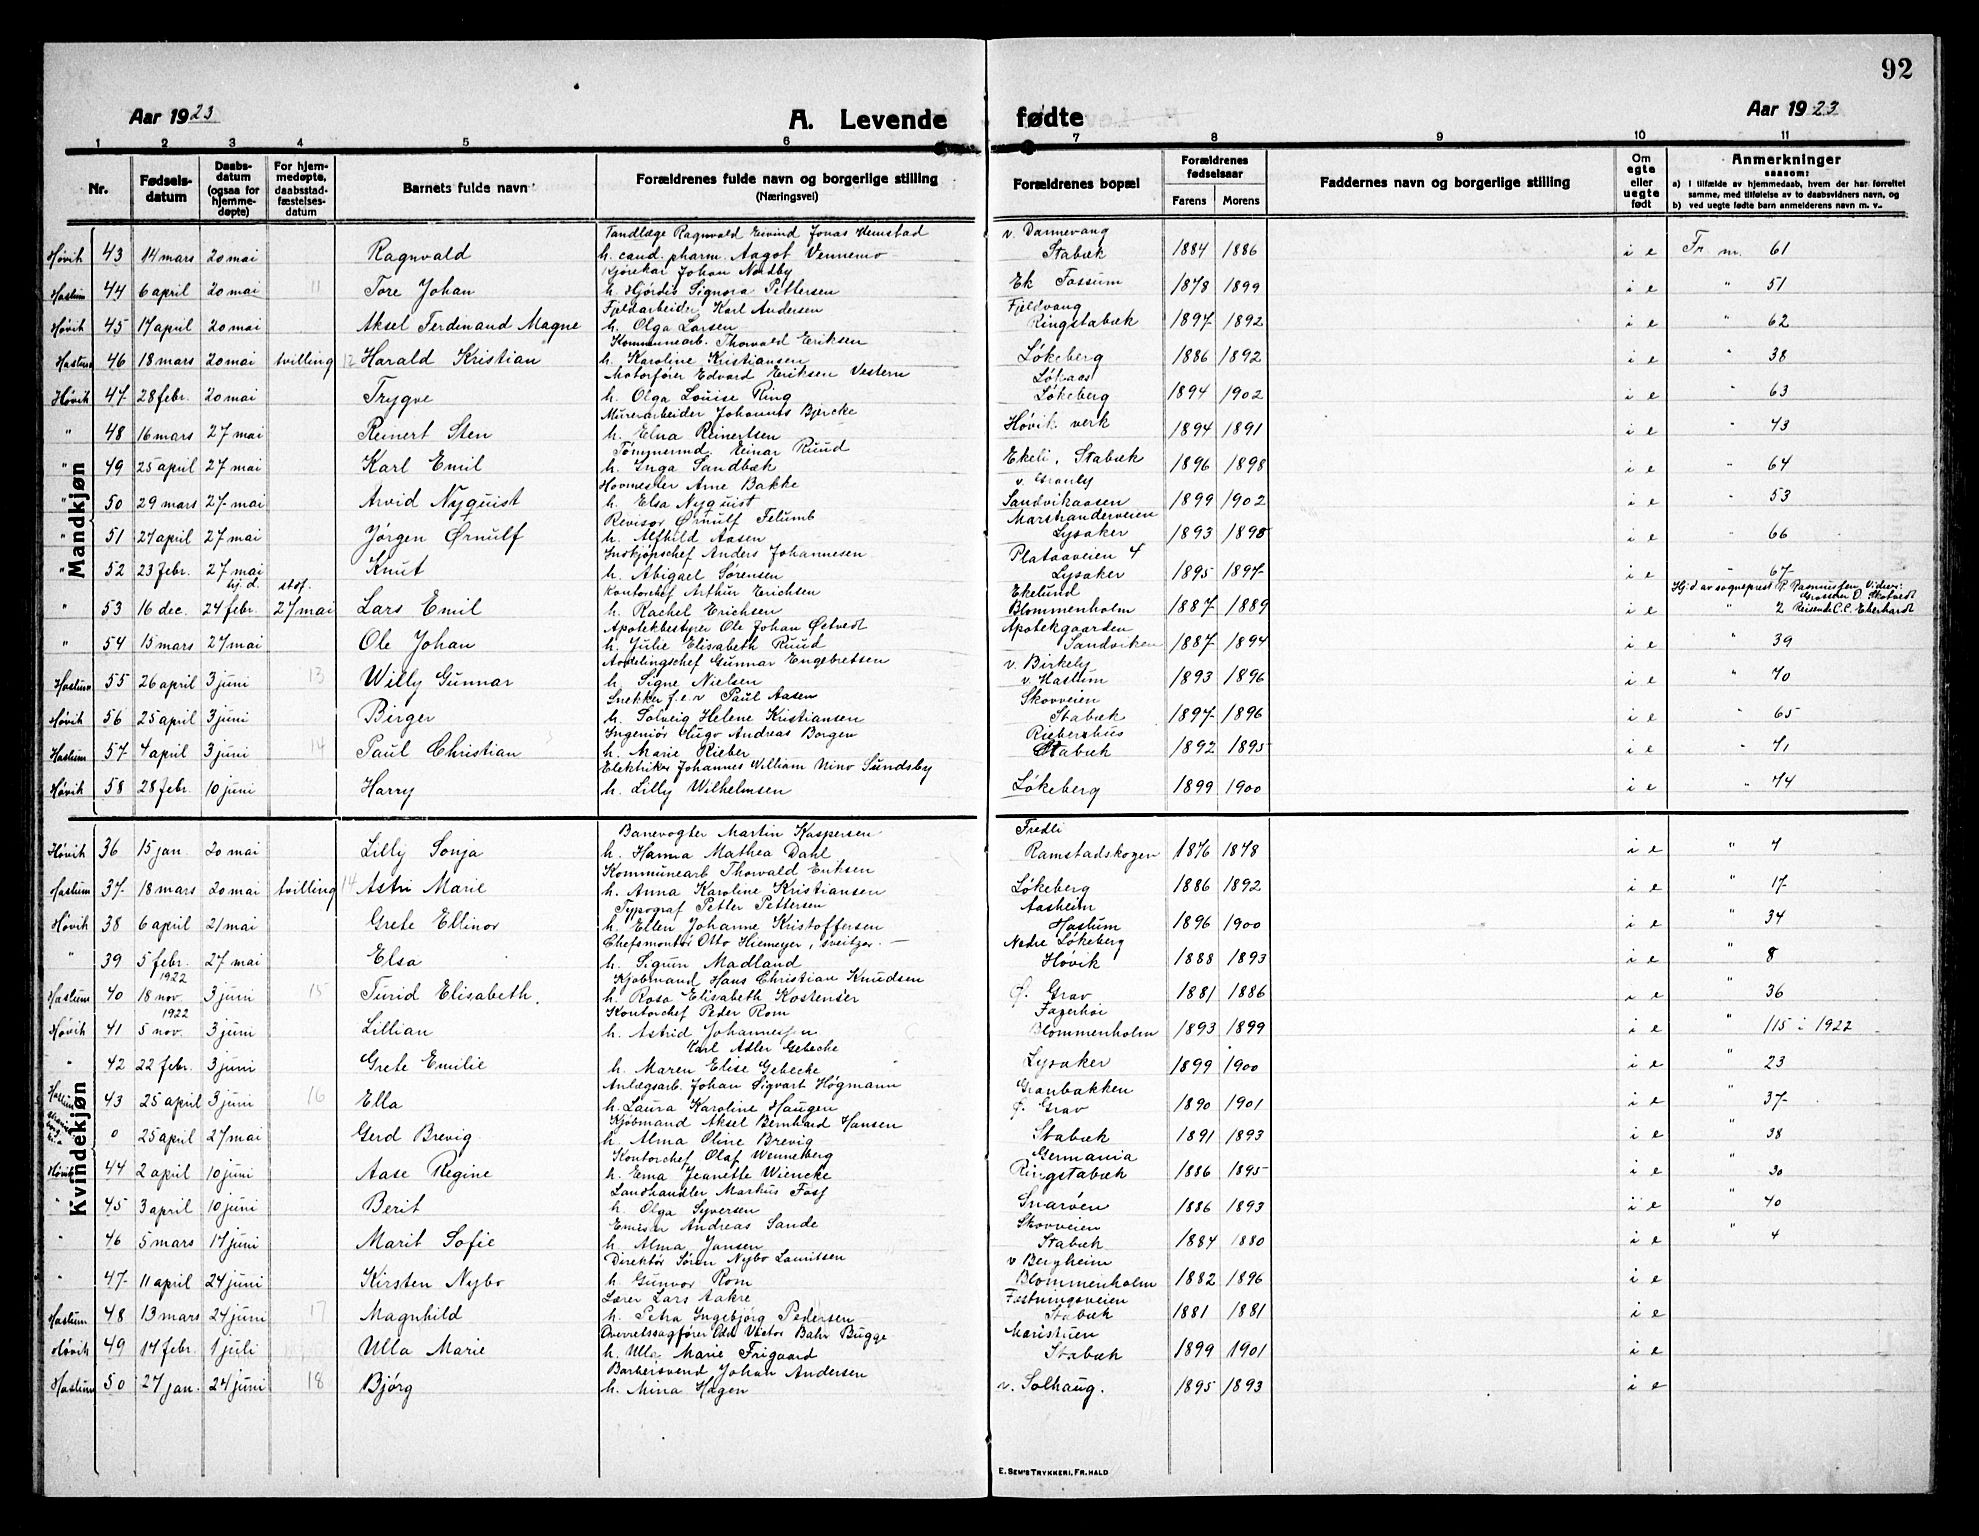 92
Aar 1923
A. Levende fødte
Aar 1923
1 2 3 4 5 6 7 8 9 10 11
Nr.
Fødsels-datum
Daabs-datum (ogsaa for hjemme-døpte)
For hjem-medøpte, daabsstad-fæstelses-datum
Barnets fulde navn
Forældrenes fulde navn og borgerlige stilling (Næringsvei)
Forældrenes bopæl
Forældrenes fødselsaar
Farens Morens
Faddernes navn og borgerlige stilling
Om egte eller uegte født
Anmerkninger
saasom:
a) I tilfælde av hjemmedaab, hvem der har forrettet samme, med tilføielse av to daabsvidners navn, og
b) ved uegte fødte barn anmelderens navn m. v.
Mandkjøn
Tandlæge Ragnvald Eivind Jonas Hemstad v. Dannevang
Høvik 43 14 mars 20 mai Ragnvald h. cand. pharm. Aagot Vennemo Stabæk 1884 1886 i e Fr. m. 61
Kjørekar Johan Nordby
Haslum 44 6 april 20 mai 11 Tore Johan h. Hjørdis Signora Pettersen Ek Fossum 1878 1899 i e " 51
Fjeldarbeider Karl Andersen Fjeldvang
Høvik 45 17 april 20 mai Aksel Ferdinand Magne h. Olga Larsen Ringstabæk 1897 1892 i e " 62
Kommunearb. Thorvald Eriksen
Haslum 46 18 mars 20 mai tvilling 12 Harald Kristian h. Karoline Kristiansen Løkeberg 1886 1892 i e " 38
Motorfører Edvard Eriksen Vestern Løkaas
Høvik 47 28 febr. 20 mai Trygve h. Olga Louise Ring Løkeberg 1894 1902 i e " 63
Murerarbeider Johannes Bjercke
" 48 16 mars 27 mai Reinert Sten h. Elna Reinertsen Høvik verk 1894 1891 i e " 43
Tømmermd. Einar Ruud
" 49 25 april 27 mai Karl Emil h. Inga Sandbæk Ekeli, Stabæk 1896 1898 i e " 64
Hovmester Arne Bakke v. Granly
" 50 29 mars 27 mai Arvid Nyquist h. Elsa Nyquist Sandvikaasen 1899 1902 i e " 53
Revisor Ørnulf Felumb Marstranderveien
" 51 27 april 27 mai Jørgen Ørnulf h. Alfhild Aasen Lysaker 1893 1898 i e " 66
Indkjøpschef Anders Johannesen Plataaveien 4
" 52 23 febr. 27 mai Knut h. Abigael Sørensen Lysaker 1895 1897 i e " 67
hj. d. stdf. Kontorchef Arthur Erichsen Ekelund Hj. d av sogneprest P. Rasmussen, Vidner:
" 53 16 dec. 24 febr. 27 mai Lars Emil h. Rachel Erichsen Blommenholm 1887 1889 i e " 2
Apotekbestyrer Ole Johan Østvedt Apotekgaarden
" 54 15 mars 27 mai Ole Johan h. Julie Elisabeth Ruud Sandviken 1887 1894 i e " 39
Avdelingschef Gunnar Engebretsen v. Birkely
Haslum 55 26 april 3 juni 13 Willy Gunnar h. Signe Nielsen v. Haslum 1893 1896 i e " 40
Snekker f.e.v Paul Aasen Skovveien
Høvik 56 25 april 3 juni Birger h. Solveig Helene Kristiansen Stabæk 1897 1896 i e " 65
Ingeniør Hugo Andreas Borgen Riebershus
Haslum 57 4 april 3 juni 14 Paul Christian h. Marie Rieber Stabæk 1892 1895 i e " 41
Elektriker Johannes William Nino Sundsby
Høvik 58 28 febr. 10 juni Harry h. Lilly Wilhelmsen Løkeberg 1899 1900 i e " 44
Kvindekjøn
Banevogter Martin Kaspersen Fredli
Høvik 36 15 jan. 20 mai Lilly Sonja h. Hanna Mathea Dahl Ramstadskogen 1876 1878 i e " 7
Kommunearb Thorvald Eriksen
Haslum 37 18 mars 20 mai tvilling 14 Astri Marie h. Anna Karoline Kristiansen Løkeberg 1886 1892 i e " 17
Typograf Petter Pettersen Aasheim
Høvik 38 6 april 21 mai Grete Ellinor h. Ellen Johanne Kristoffersen Haslum 1896 1900 i e " 34
Chefsmontør Otto Hiemeyer, sveitzer. Nedre Løkeberg
" 39 5 febr. 27 mai Elsa h. Sigrun Madland Høvik 1888 1893 i e " 8
1922 Kjøbmand Hans Christian Knudsen
Haslum 40 18 nov. 3 juni 15 Turid Elisabeth h. Rosa Elisabeth Kostenser Ø. Grav 1881 1886 i e " 36
1922 Kontorchef Peder Rom Fagerhøi
Høvik 41 5 nov. 3 juni Lillian h. Astrid Johannessen Blommenholm 1893 1899 i e " 115 i 1922
Karl Adler Gebecke
" 42 22 febr. 3 juni Grete Emilie h. Maren Elise Gebecke Lysaker 1899 1900 i e " 23
Anlægsarb. Johan Sigvart Högmann Granbakken
Haslum 43 25 april 3 juni 16 Ella h. Laura Karoline Haugen Ø. Grav 1890 1901 i e " 37
Kjøbmand Aksel Bernhard Hansen
0 25 april 27 mai Gerd Brevig h. Alma Oline Brevig Stabæk 1891 1893 i e " 38
Kontorchef Olaf Wenneberg Germania
Høvik 44 2 april 10 juni Aase Regine h. Ema Jeanette Wiencke Ringstabæk 1886 1895 i e " 30
Landhandler Markus Foss
" 45 3 april 10 juni Berit h. Olga Syversen Snarøen 1886 1893 i e " 40
Emissær Andreas Sande Skovveien
" 46 5 mars 17 juni Marit Sofie h. Alma Jansen Stabæk 1884 1880 i e " 4
Direktør Søren Nybo Lauritsen v Bergheim
" 47 11 april 24 juni Kirsten Nybo h. Gunvor Rom Blommenholm 1882 1896 i e
Lærer Lars Aakre Festningsveien
Haslum 48 13 mars 24 juni 17 Magnhild h. Petra Ingebjørg Pedersen Stabæk 1881 1881 i e
Overretssagfører Odd Victor Bahr Bugge Maristuen
Høvik 49 14 febr. 1 juli Ulla Marie h. Ulla Marie Frigaard Stabæk 1899 1901 i e
Barbersvend Johan Andersen
Haslum 50 27 jan. 24 juni 18 Bjørg h. Mina Hagen v. Solhaug. 1895 1893 i e
E. SEM'S TRYKKERI, FR.HALD